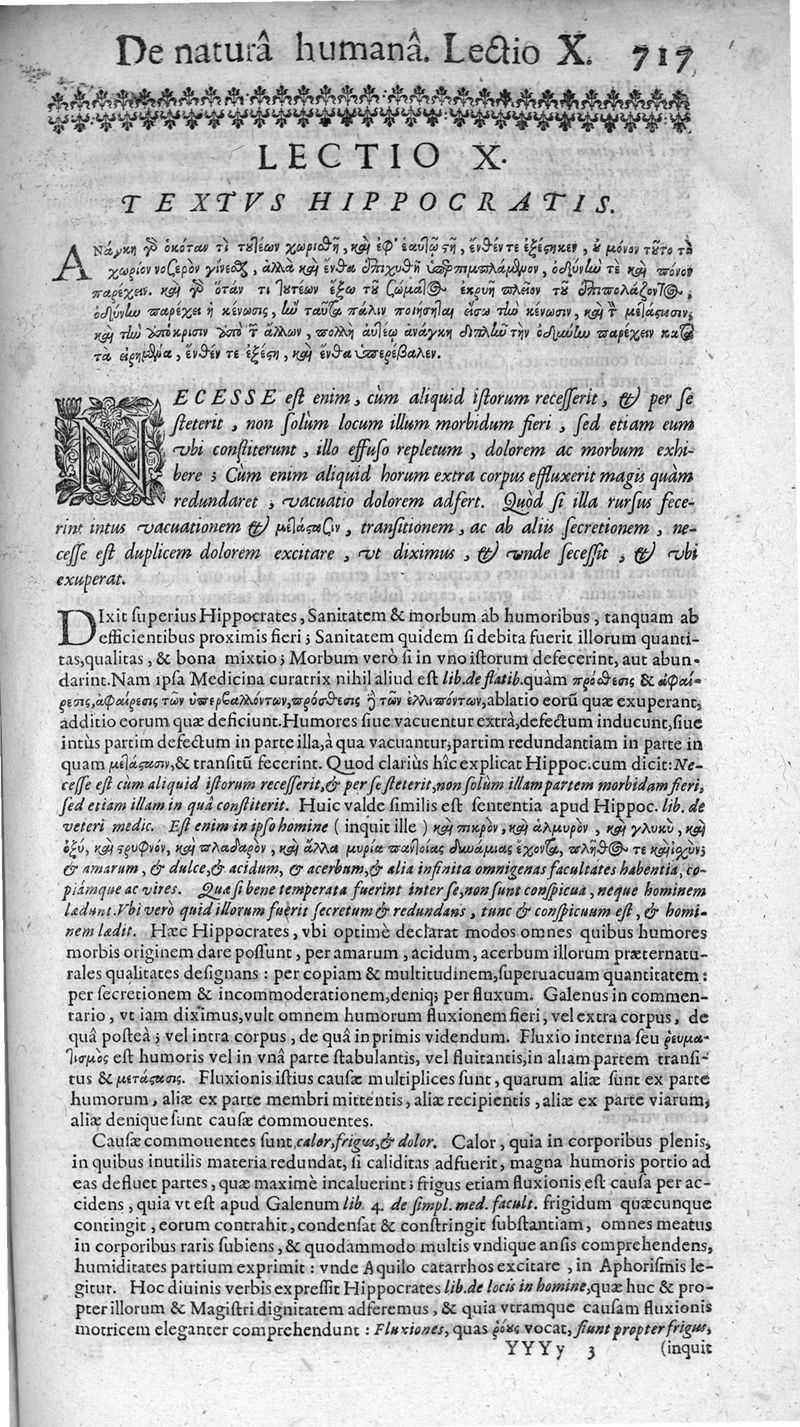 De naturâ humanâ. Lectio X. 717
LECTIO X.
TEXTVS HIPPOCRATIS.
ΑΝάγκη γὸ ὁκόταν τὶ τουτέων χωρισθῇ, καὶ ἐφ' ἑαυτοῦ στῇ, ἔνθέν τε ἐξέστηκεν, οὐ μόνον τοῦτο τὸ
χωρίον νοσερὸν γίνεσθαι, ἀλλὰ καὶ ἔνθα ἐπιχυθῇ ὑπερπιμπλάμενον, ὀδύνην τε καὶ πόνον
παρέχειν. καὶ γὸ ὅταν τι τουτέων ἔξω τοῦ σώματος ἐκρυῇ πλεῖον τοῦ ἐπιπολάζοντος,
ὀδύνην παρέχει ἡ κένωσις, ἢν ταῦτα πάλιν ποιήσηται εἴσω τὴν κένωσιν, καὶ τ μετάστασιν,
καὶ τὴν ὑπόκρισιν ὑπὸ τ ἄλλων, πολλὴ αὐτέῳ ἀνάγκη διπλῶ τὴν ὀδύνην παρέχειν κατὰ
τὰ εἰρημένα, ἔνθέν τε ἐξέστη, καὶ ἔνθα ὑπερέβαλεν.
NECESSE est enim, cùm aliquid istorum recesserit, & per se
steterit, non solùm locum illum morbidum fieri, sed etiam eum
vbi constiterunt, illo effuso repletum, dolorem ac morbum exhi-
bere; Cùm enim aliquid horum extra corpus effluxerit magis quàm
redundaret, vacuatio dolorem adfert. Quòd si illa rursus fece-
rint intus vacuationem & μετάστασιν, transitionem, ac ab aliis secretionem, ne-
cesse est duplicem dolorem excitare, vt diximus, & vnde secessit, & vbi
exuperat.
DIxit superius Hippocrates, Sanitatem & morbum ab humoribus, tanquam ab
efficientibus proximis fieri; Sanitatem quidem si debita fuerit illorum quanti-
tas, qualitas, & bona mixtio; Morbum verò si in vno istorum defecerint, aut abun-
darint. Nam ipsa Medicina curatrix nihil aliud est lib. de flatib. quàm πρόσθεσις & ἀφαί-
ρεσις, ἀφαίρεσις τῶν ὑπερβαλλόντων, πρόσθεσις ἢ τῶν ἐλλιπόντων, ablatio eorū quæ exuperant,
additio eorum quæ deficiunt. Humores siue vacuentur extrà, defectum inducunt, siue
intùs partim defectum in parte illa, à qua vacuantur, partim redundantiam in parte in
quam μετάστασιν, & transitū fecerint. Quod clariùs hîc explicat Hippoc. cum dicit: Ne-
cesse est cùm aliquid istorum recesserit, & per se steterit, non solùm illam partem morbidam fieri,
sed etiam illam in quâ constiterit. Huic valde similis est sententia apud Hippoc. lib. de
veteri medic. Est enim in ipso homine (inquit ille) καὶ πικρὸν, καὶ ἁλμυρὸν, καὶ γλυκὺ, καὶ
ὀξὺ, καὶ στρυφνὸν, καὶ πλαδαρὸν, καὶ ἄλλα μυρία παντοίας δυνάμιας ἔχοντα, πλῆθος τε καὶ ἰσχὺν;
& amarum, & dulce, & acidum, & acerbum, & alia infinita omnigenas facultates habentia, co-
piámque ac vires. Quæ si bene temperata fuerint inter se, non sunt conspicua, neque hominem
lædunt. Vbi verò quid illorum fuerit secretum & redundans, tunc & conspicuum est, & homi-
nem lædit. Hæc Hippocrates, vbi optimè declarat modos omnes quibus humores
morbis originem dare possunt, per amarum, acidum, acerbum illorum præternatu-
rales qualitates designans: per copiam & multitudinem, superuacuam quantitatem:
per secretionem & incommoderationem, deniq; per fluxum. Galenus in commen-
tario, vt iam diximus, vult omnem humorum fluxionem fieri, vel extra corpus, de
quâ posteà; vel intra corpus, de quâ inprimis videndum. Fluxio interna seu ῥευμα-
τισμὸς est humoris vel in vnâ parte stabulantis, vel fluitantis, in aliam partem transi-
tus & μετάστασις. Fluxionis istius causæ multiplices sunt, quarum aliæ sunt ex parte
humorum, aliæ ex parte membri mittentis, aliæ recipientis, aliæ ex parte viarum,
aliæ denique sunt causæ commouentes.
Causæ commouentes sunt, calor, frigus, & dolor. Calor, quia in corporibus plenis,
in quibus inutilis materia redundat, si caliditas adfuerit, magna humoris portio ad
eas defluet partes, quæ maximè incaluerint; frigus etiam fluxionis est causa per ac-
cidens, quia vt est apud Galenum lib 4. de simpl. med. facult. frigidum quæcunque
contingit, eorum contrahit, condensat & constringit substantiam, omnes meatus
in corporibus raris subiens, & quodammodo multis vndique ansis comprehendens,
humiditates partium exprimit: vnde Aquilo catarrhos excitare, in Aphorismis le-
gitur. Hoc diuinis verbis expressit Hippocrates lib. de locis in homine, quæ huc & pro-
pter illorum & Magistri dignitatem adferemus, & quia vtramque causam fluxionis
motricem eleganter comprehendunt: Fluxiones, quas ῥόους vocat, fiunt propter frigus,
YYYy 3 (inquit